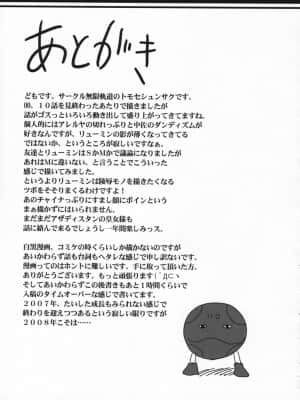 あとがき
どもです。サークル無限軌道のトモセシュンサクです。
00、10話を見終わったあたりで描きましたが
話がゴスっといろいろ動き出して盛り上がってきてますね。
個人的にはアレルヤの切れっぷりと中佐のダンディズムが
好きなんですが、リューミンの影が薄くなってきてる
ではないか、というところが寂しいですなぁ。
友達とリューミンはSかMかで議論になりましたが
あれはMに違いない。と言うことでこういった
感じで描いてみました。
というよりリューミンは陵辱モノを描きたくなる
ツボをそそりまくるわけですよ!
あのチャイナっぷりにすまし顔にボインという
まぁ描かずにはいられません。
まだまだアザディスタンの皇女様も
話に絡んで来るでしょうし一年間楽しみっス。
白黒漫画、コミケの時くらいしか描かないのですが
あいかわらず話も台詞もヘタレな感じで申し訳ないです。
漫画ってのはホントに難しいです。手に取って頂いた方、
ありがとうございます。もっと頑張ります(´Д⊂ヽ
そしてあいかわらずこの後書きもあと1時間くらいで
入稿のタイムオーバーな感じで書いてます。
2007年、たいした成長もみられない感じで
終わりを迎えつつあるという寂しい限りですが
2008年こそは……